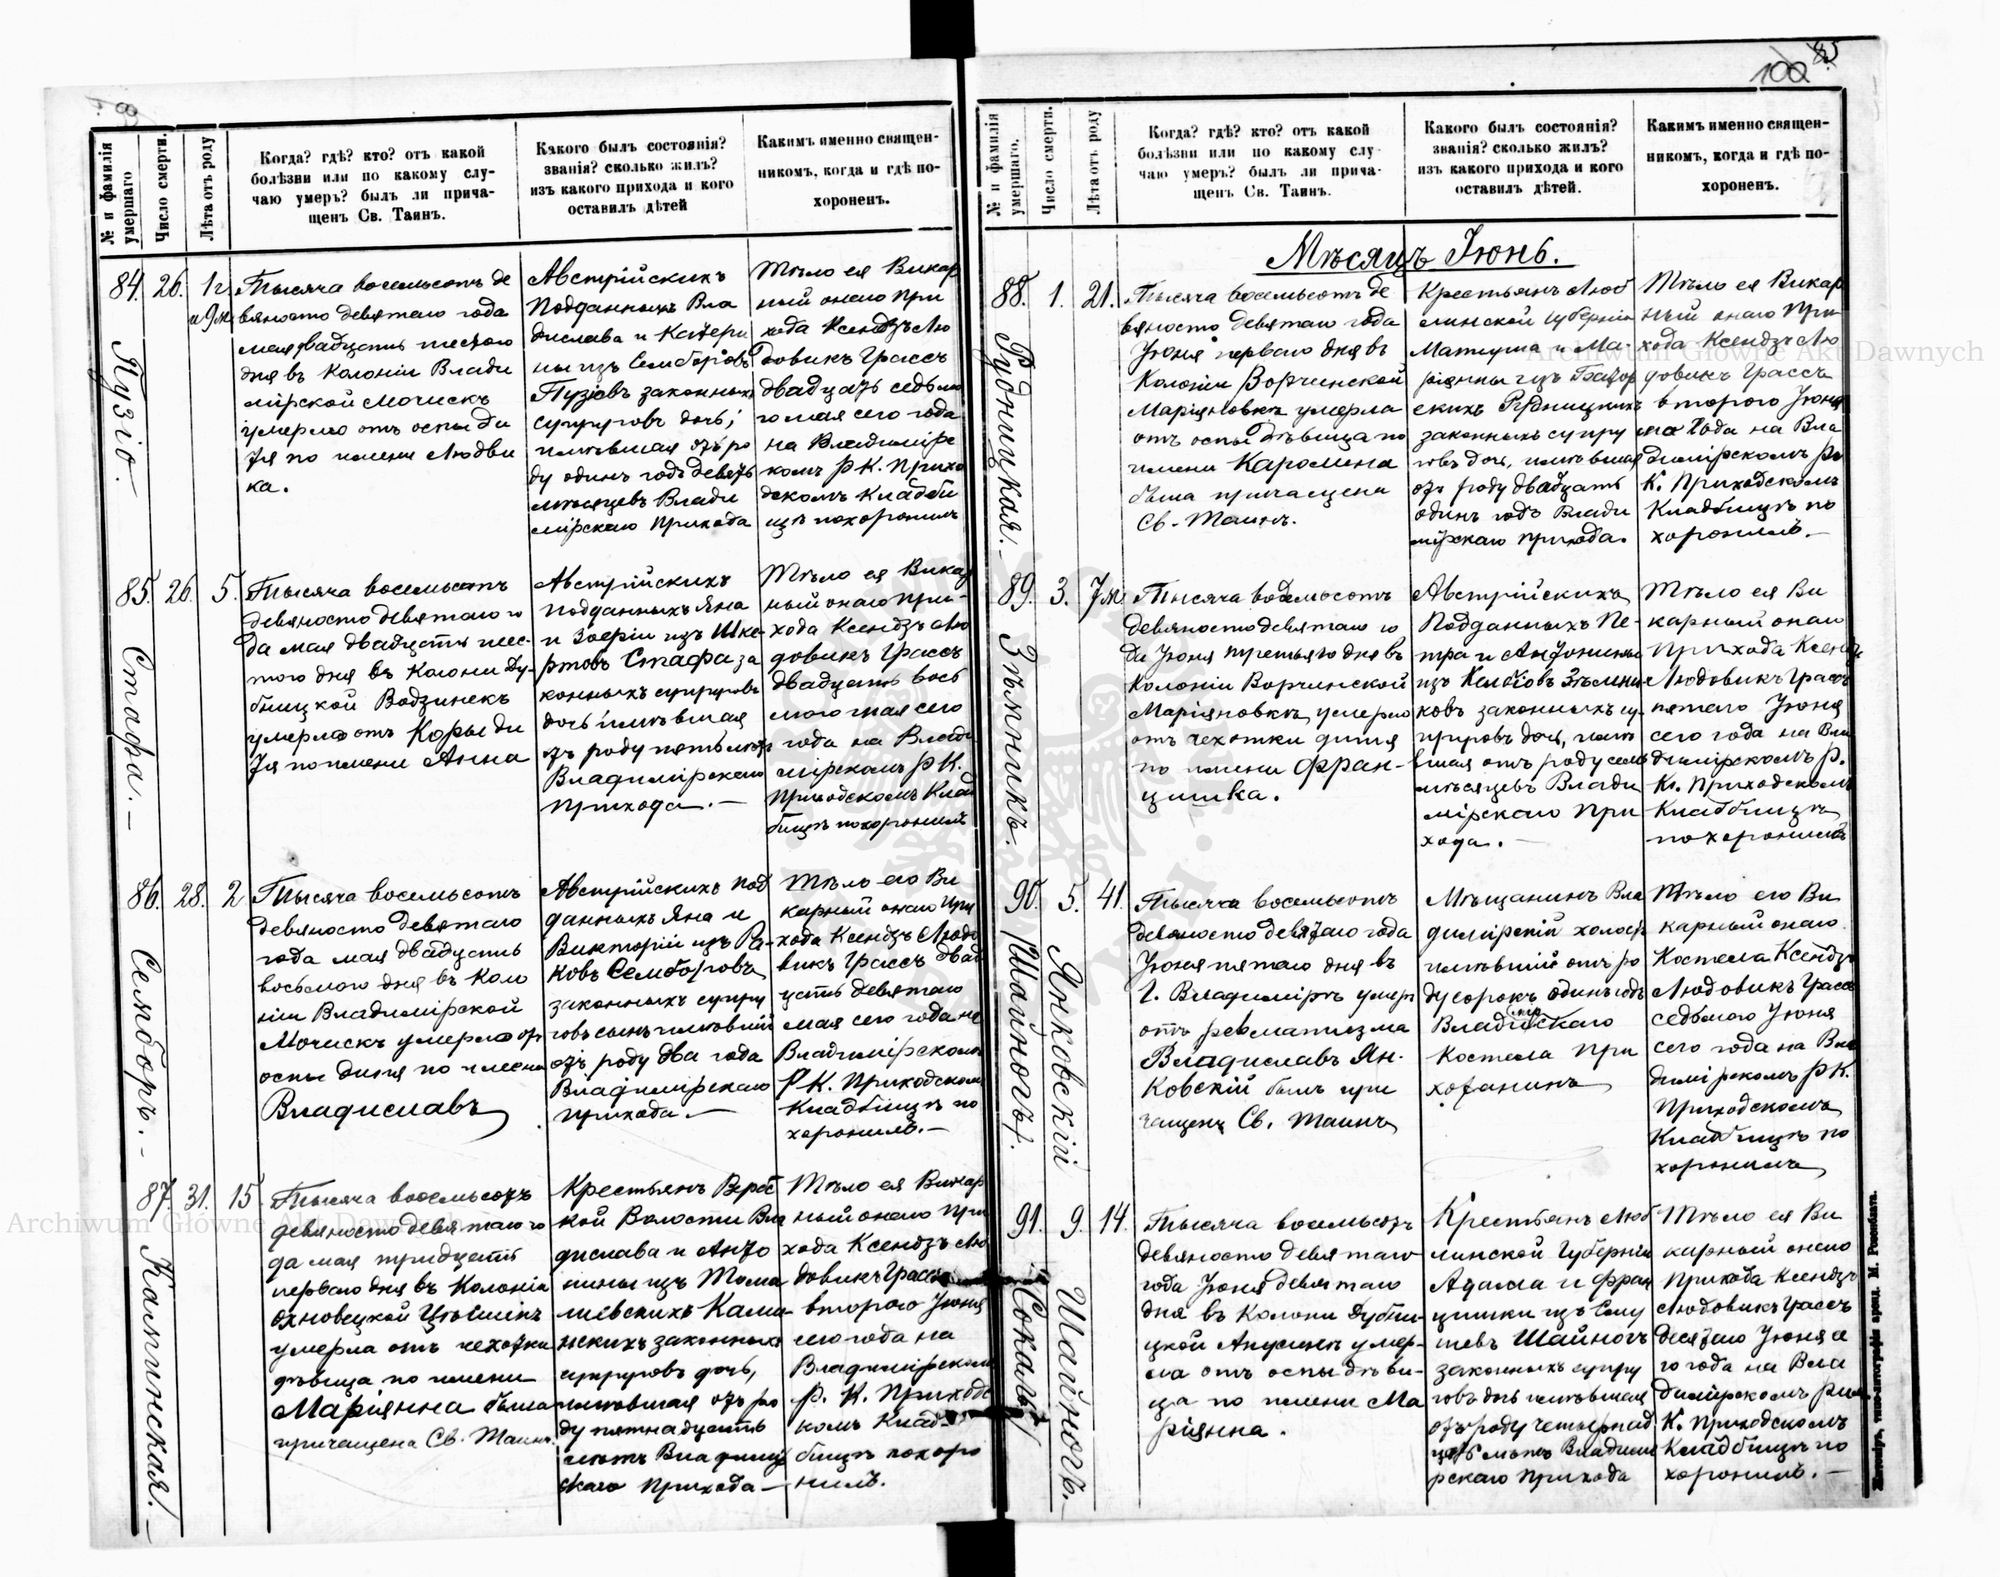 85
100
№ и фамилія умершаго
Число смерти.
Лѣта отъ роду
Когда? гдѣ? кто? отъ какой
болѣзни или по какому слу-
чаю умеръ? былъ ли прича-
щенъ Св. Таинъ.
Какого былъ состоянія?
званія? сколько жилъ?
изъ какого прихода и кого
оставилъ дѣтей
Какимъ именно священ-
никомъ, когда и гдѣ по-
хороненъ.
84. 26. 1 г. и 9 м.
Пузіо.
Тысяча восемьсотъ де
вяносто девятаго года
мая двадцать шестого
дня въ Колоніи Влади
мірской Мочискъ
умерло отъ оспы ди
тя по имени Людви
ка.
Австрійскихъ
Подданныхъ Вла
дислава и Катери
ны изъ Семборовъ
Пузіовъ законныхъ
супруговъ дочь;
имѣвшая отъ ро
ду одинъ годъ девять
мѣсяцевъ Влади
мірскаго прихода
Тѣло ея Викар
ный онаго При
хода Ксендзъ Лю
довикъ Грассъ
двадцать седьмо
го мая сего года
на Владимірс
комъ Р К. Прихо
дскомъ Кладби
щѣ похоронилъ
85. 26. 5.
Стафа. —
Тысяча восемьсотъ
девяносто девятаго го
да мая двадцать шес-
того дня въ Колоніи Ду-
бницкой Водзинекъ
умерло отъ Коры ди
тя по имени Анна
Австрійскихъ
подданныхъ Яна
и Зофіи изъ Шке-
ртовъ Стафа за
конныхъ супруговъ
дочь имѣвшая
отъ роду пять лѣтъ
Владимірскаго
прихода. —
Тѣло ея Викар
ный онаго При-
хода Ксендзъ Лю
довикъ Грассъ
двадцать вось
мого мая сего
года на Влади
мірскомъ Р К.
Приходскомъ Клад
бищѣ похоронилъ
86. 28. 2
Семборъ. —
Тысяча восемьсотъ
девяносто девятаго
года мая двадцать
восьмого дня въ Коло
ніи Владимірской
Мочискъ умерло от
оспы дитя по имени
Владиславъ
Австрійскихъ под
данныхъ Яна и
Викторіи изъ Ра-
ковъ Семборовъ
законныхъ супру
говъ сынъ имѣвшій
отъ роду два года
Владимірскаго
прихода. —
Тѣло его Ви
карный онаго При
хода Ксендзъ Людо
викъ Грассъ двад
цать девятаго
мая сего года на
Владимірскомъ
Р К. Приходскомъ
Кладбищѣ по
хоронилъ. —
87. 31. 15.
Каминская. —
Тысяча восемьсотъ
девяносто девятаго го
да мая тридцать
перваго дня въ Колоніи
умерла отъ чехотки
дѣвица по имени
Маріянна была
причащена Св. Таинъ.
Крестьянъ Верб
кой Волости Вла
дислава и Анто
нины изъ Тома
шевскихъ Ками
нскихъ законныхъ
супруговъ дочь,
имѣвшая отъ ро
ду пятнадцать
лѣтъ Владимір
скаго Прихода —
Тѣло ея Викар
ный онаго При
хода Ксендзъ Лю
довикъ Грассъ
второго Іюня
сего года на
Владимірскомъ
Р. К. Приходс
комъ Клад-
бищѣ похоро
нилъ.
№ и фамилія умершаго.
Число смерти.
Лѣта отъ роду
Когда? гдѣ? кто? отъ какой
болѣзни или по какому слу-
чаю умеръ? былъ ли прича-
щенъ Св. Таинъ.
Какого былъ состоянія?
званія? сколько жилъ?
изъ какого прихода и кого
оставилъ дѣтей.
Какимъ именно священ-
никомъ, когда и гдѣ по-
хороненъ.
Мѣсяцъ Іюнь.
88. 1. 21.
Рудницкая. —
Тысяча восемьсотъ де
вяносто девятаго года
Іюня перваго дня въ
Колоніи Ворчинской
Маріяновкѣ умерла
отъ оспы дѣвица по
имени Каролина
была причащена
Св. Таинъ.
Крестьянъ Люб
линской губерніи
Матеуша и Ма-
ріянны изъ
скихъ Рудницкихъ
законныхъ супру
говъ дочь, имѣвшая
отъ роду двадцать
одинъ годъ Влади
мірскаго прихода.
Тѣло ея Викар
ный онаго При
хода Ксендзъ Лю
довикъ Грассъ
второго Іюня
сего года на Вла
димірскомъ Р.
К. Приходскомъ
Кладбищѣ по
хоронилъ. —
89. 3. 7 м.
Зѣмникъ.
Тысяча восемьсотъ
девяносто девятаго го
да Іюня третьяго дня въ
Колоніи Ворчинской
Маріяновкѣ умерло
отъ чехотки дитя
по имени Фран-
цишка.
Австрійскихъ
Подданныхъ Пе-
тра и Антонины
изъ Зѣмни
ковъ законныхъ су-
пруговъ дочь, имѣ
вшая отъ роду семь
мѣсяцевъ Влади
мірскаго При
хода. —
Тѣло ея Ви
карный онаго
Прихода Ксендзъ
Людовикъ Грассъ
пятаго Іюня
сего года на Вла
димірскомъ Р.
К. Приходскомъ
Кладбищѣ
похоронилъ
90. 5. 41.
Янковскій
Тысяча восемьсотъ
девяносто девятаго года
Іюня пятаго дня въ
г. Владимірѣ умеръ
отъ ревматизма
Владиславъ Ян-
ковскій былъ при
чащенъ Св. Таинъ
Мѣщанинъ Вла
димірскій холост
имѣвшій отъ ро
ду сорокъ одинъ годъ
Владимірскаго
Костела При
хожанинъ
Тѣло его Ви
карный онаго
Костела Ксендзъ
Людовикъ Грассъ
седьмого Іюня
сего года на Вла
димірскомъ Р К.
Приходскомъ
Кладбищѣ по
хоронилъ
91. 9. 14.
Шайногъ.
(Шайногъ)
(Сокалъ)
Тысяча восемьсотъ
девяносто девятаго
года Іюня девятаго
дня въ Колоніи Дубни-
цкой Анусинъ умер-
ла отъ оспы дѣви-
ца по имени Ма
ріянна.
Крестьянъ Люб
линской Губерніи
Адама и Фран
цишки изъ
Шайногъ
законныхъ супру
говъ дочь имѣвшая
отъ роду четырнад
цать лѣтъ Владими
рскаго прихода
Тѣло ея Ви
карный онаго
Прихода Ксендзъ
Людовикъ Грассъ
десятаго Іюня се
го года на Вла
димірскомъ Рим
К. Приходскомъ
Кладбищѣ по
хоронилъ. —
Житоміръ, типо-литографія аренд. М. Розенблата.
Archiwum Główne Akt Dawnych
Archiwum Główne Akt Dawnych